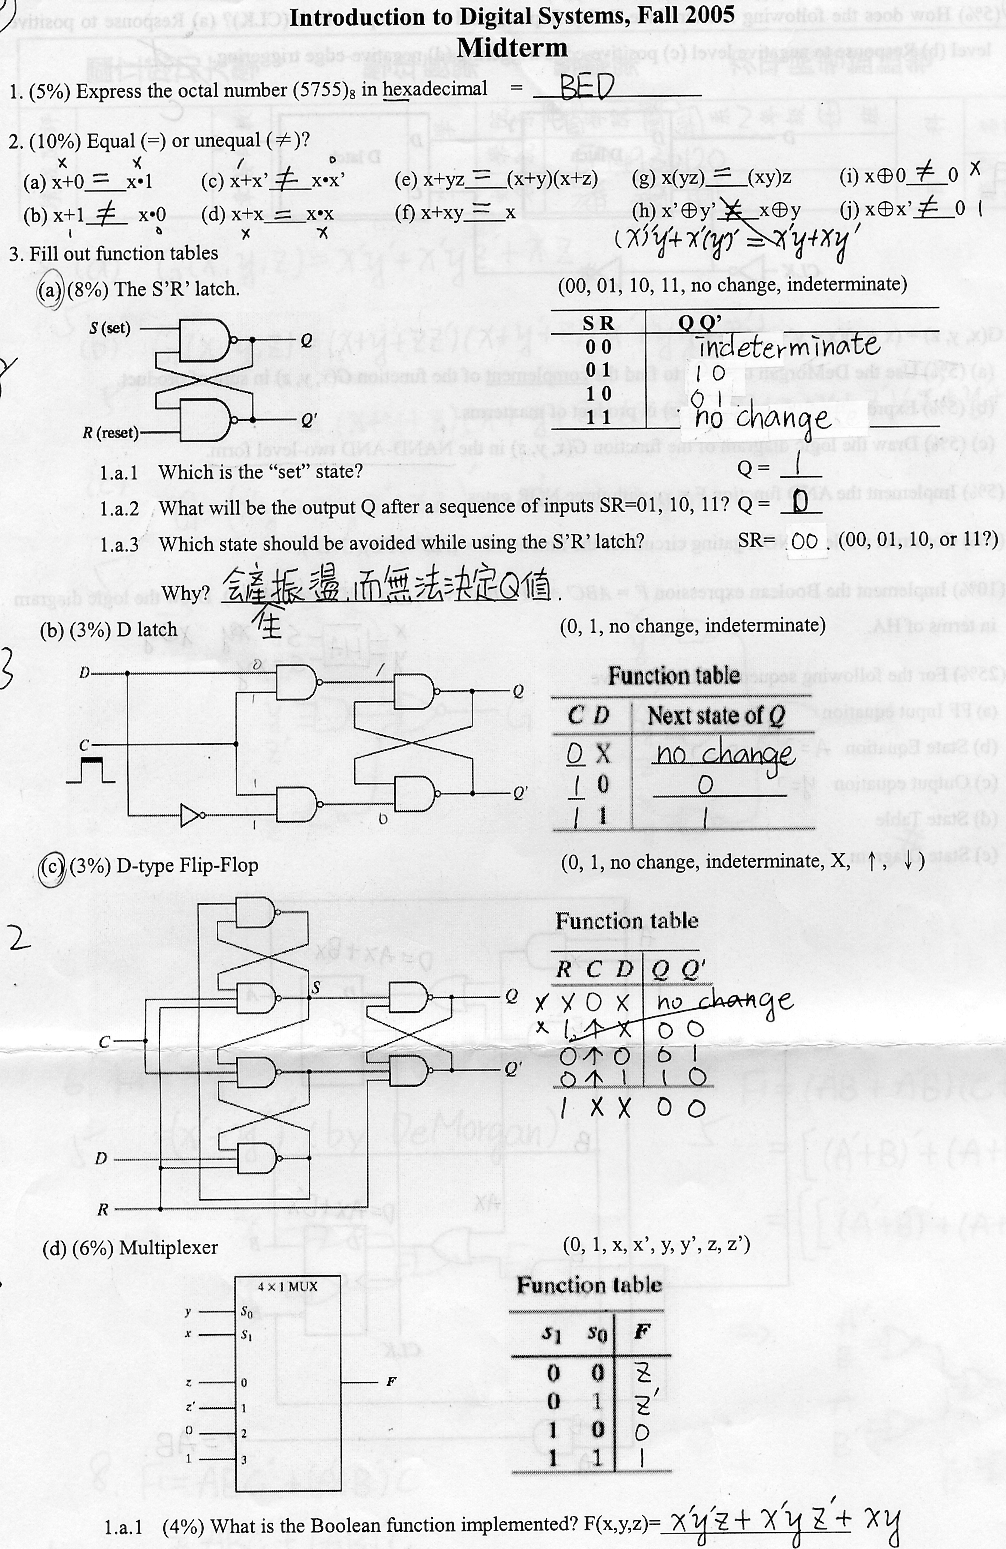 Introduction to Digital Systems, Fall 2005
Midterm
1. (5%) Express the octal number (5755)₈ in hexadecimal = BED
2. (10%) Equal (=) or unequal (≠)?
x x / 0
(a) x+0 = x•1 (c) x+x' ≠ x•x' (e) x+yz = (x+y)(x+z) (g) x(yz) = (xy)z (i) x⊕0 ≠ 0 X
(b) x+1 ≠ x•0 (d) x+x = x•x (f) x+xy = x (h) x'⊕y' = x⊕y (j) x⊕x' ≠ 0 1
1 0 x x (x')'y'+x'(y')' = x'y+xy'
3. Fill out function tables
(a) (8%) The S'R' latch. (00, 01, 10, 11, no change, indeterminate)
S (set) Q
R (reset) Q'
S R Q Q'
0 0 indeterminate
0 1 1 0
1 0 0 1
1 1 no change
1.a.1 Which is the "set" state? Q = 1
1.a.2 What will be the output Q after a sequence of inputs SR=01, 10, 11? Q = 0
1.a.3 Which state should be avoided while using the S'R' latch? SR= 00 (00, 01, 10, or 11?)
Why? 會產生振盪,而無法決定Q值.
3
(b) (3%) D latch (0, 1, no change, indeterminate)
D 0 / Q
1
C
1
0 Q'
1
Function table
C D Next state of Q
0 X no change
1 0 0
1 1 1
2
(c) (3%) D-type Flip-Flop (0, 1, no change, indeterminate, X, ↑, ↓)
S
Q
C
Q'
D
R
Function table
R C D Q Q'
X X 0 X no change
x 1 ↑ X 0 0
0 ↑ 0 0 1
0 ↑ 1 1 0
1 X X 0 0
(d) (6%) Multiplexer (0, 1, x, x', y, y', z, z')
4 × 1 MUX
y S₀
x S₁
z 0 F
z' 1
0 2
1 3
Function table
s₁ s₀ F
0 0 z
0 1 z'
1 0 0
1 1 1
1.a.1 (4%) What is the Boolean function implemented? F(x,y,z)= x'y'z + x'yz' + xy